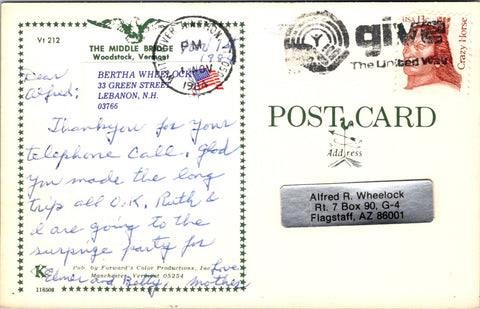 Vt 212
THE MIDDLE BRIDGE
Woodstock, Vermont
BERTHA WHEELOCK
33 GREEN STREET
LEBANON, N.H.
03766
PM
NOV
Dear
Alfred:
Thankyou for your
telephone call. glad
you made the long
trip all O.K. Ruth &
I are going to the
surprize party for
Elmer and Betty.
Love
mother
Pub. by Forward's Color Productions, Inc.
Manchester, Vermont 05254
K
116508
give
The United Way
USA 13c
Crazy Horse
POST CARD
Address
Alfred R. Wheelock
Rt. 7 Box 90, G-4
Flagstaff, AZ 86001